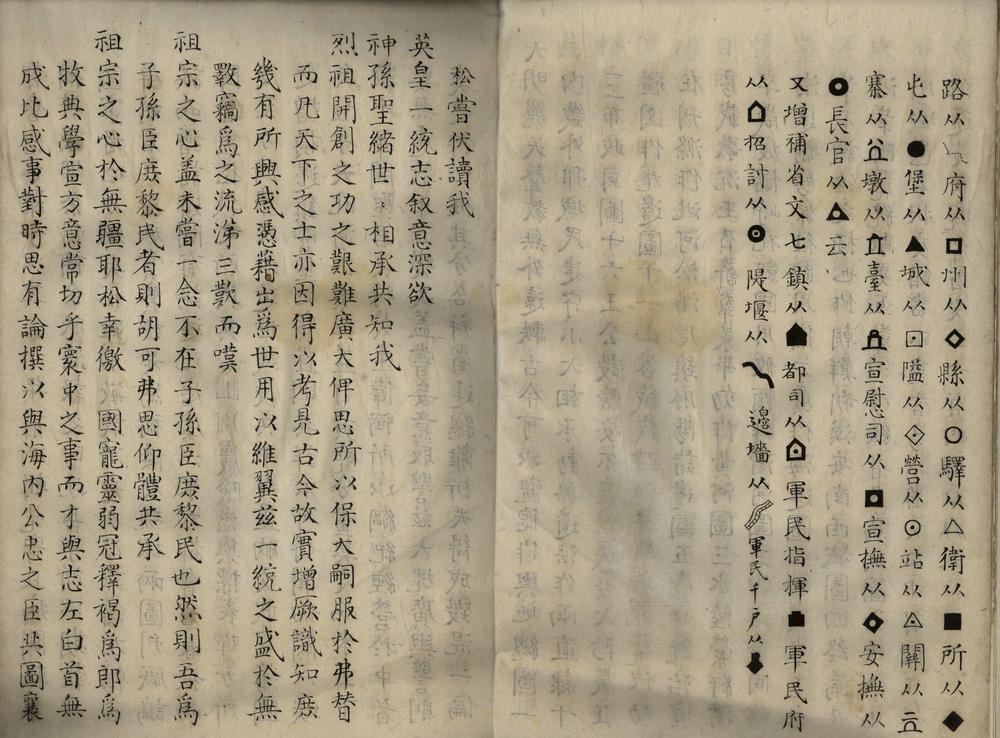 路从 府从□州从◇縣从○驛从△衛从■所从◆
屯从●堡从▲城从⊡隘从◈營从⊙站从◬關从
寨从 墩从 臺从 宣慰司从 宣撫从 安撫从
長官从 云
又增補省文七鎮从 都司从 軍民指揮 軍民府
从 招討从◎ 隄堰从 邊墻从 軍民千戶从
松嘗伏讀我
英皇一統志叙意深欲
神孫聖緒世相承共知我
烈祖開創之功之艱難廣大俾思所以保大嗣服於弗替
而凡天下之士亦因得以考見古今故實增厥識知庶
幾有所興感憑藉出為世用以維翼兹一統之盛於無
斁竊為之流涕三歎而嘆
祖宗之心盖未嘗一念不在子孫臣庶黎民也然則吾為
子孫臣庶黎民者則胡可弗思仰體共承
祖宗之心於無疆耶松幸徼國寵靈弱冠釋褐為郎為
牧典學宣方意常切乎寰中之事而才與志左白首無
成比感事對時思有論撰以與海內公忠之臣共圖襄